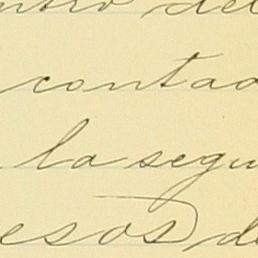 ntro del
contad
la segu
esos de